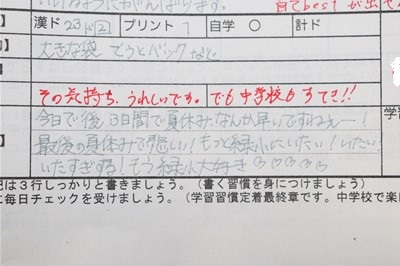 いけるようにがんばります。 自てbestが出せ
漢ド 23ド② プリント 1 自学 ○ 計ド
大きな袋 てさげバック など
その気持ち、うれしいです。でも中学校もすてき!!
今日で後、3日間で夏休み、なんか早いですねぇー!
最後の夏休みで悲しい!もっと緑小にいたい!いたい!
いたすぎる!もう緑小大好き♡♡♡♡♡
学習
記は3行しっかりと書きましょう。(書く習慣を身につけましょう)
に毎日チェックを受けましょう。(学習習慣定着最終章です。中学校で楽に